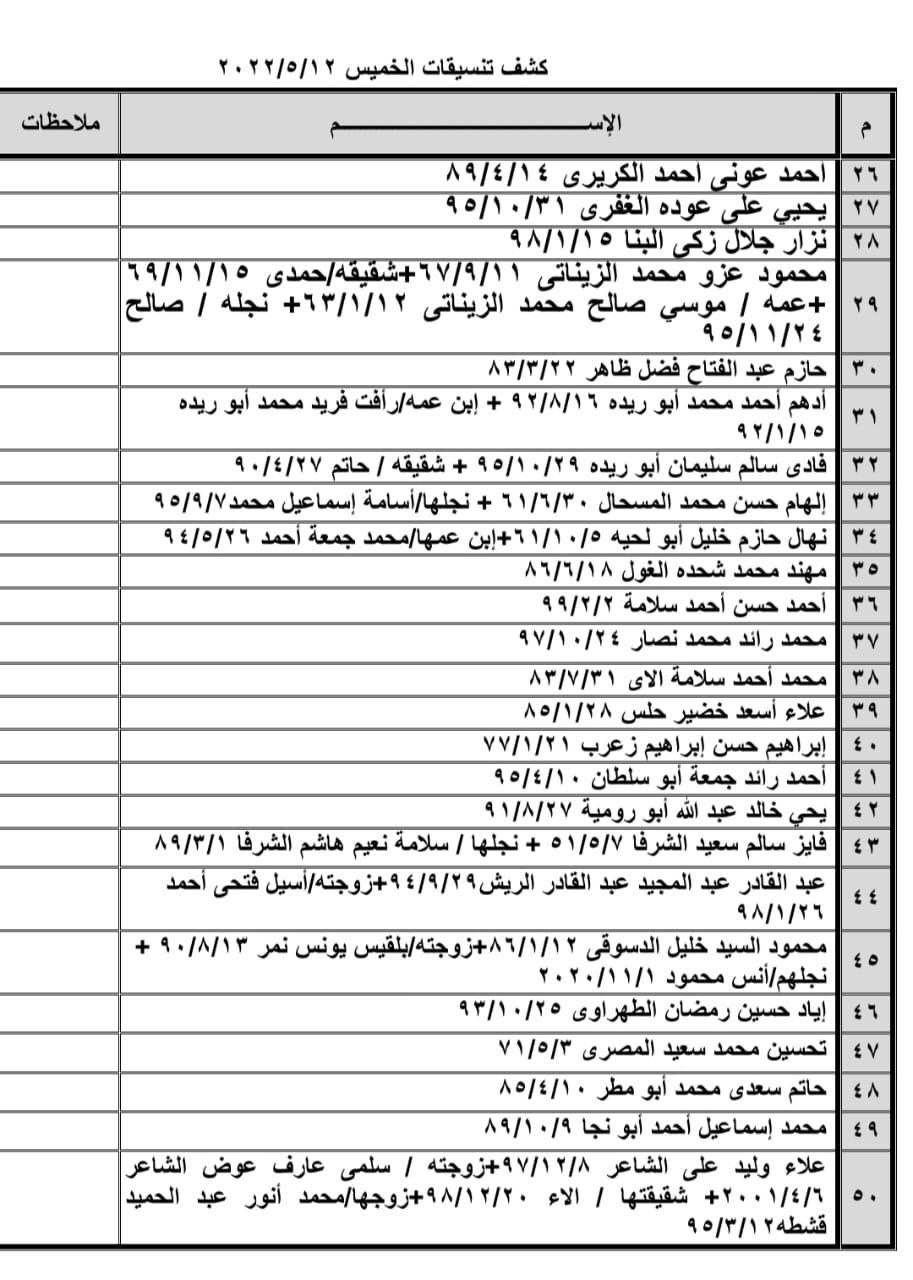 كشف تنسيقات الخميس ٢٠٢٢/٥/١٢
م الإســـــــــم ملاحظات
٢٦ أحمد عونى أحمد الكريرى ٨٩/٤/١٤
٢٧ يحيي على عوده الغفرى ٩٥/١٠/٣١
٢٨ نزار جلال زكى البنا ٩٨/١/١٥
٢٩ محمود عزو محمد الزيناتى ٦٧/٩/١١+شقيقه/حمدى ٦٩/١١/١٥
+عمه / موسي صالح محمد الزيناتى ٦٣/١/١٢+ نجله / صالح
٩٥/١١/٢٤
٣٠ حازم عبد الفتاح فضل ظاهر ٨٣/٣/٢٢
٣١ أدهم أحمد محمد أبو ريده ٩٢/٨/١٦ + إبن عمه/رأفت فريد محمد أبو ريده
٩٢/١/١٥
٣٢ فادى سالم سليمان أبو ريده ٩٥/١٠/٢٩ + شقيقه / حاتم ٩٠/٤/٢٧
٣٣ إلهام حسن محمد المسحال ٦١/٦/٣٠ + نجلها/أسامة إسماعيل محمد٩٥/٩/٧
٣٤ نهال حازم خليل أبو لحيه ٦١/١٠/٥+إبن عمها/محمد جمعة أحمد ٩٤/٥/٢٦
٣٥ مهند محمد شحده الغول ٨٦/٦/١٨
٣٦ أحمد حسن أحمد سلامة ٩٩/٢/٢
٣٧ محمد رائد محمد نصار ٩٧/١٠/٢٤
٣٨ محمد أحمد سلامة الاى ٨٣/٧/٣١
٣٩ علاء أسعد خضير حلس ٨٥/١/٢٨
٤٠ إبراهيم حسن إبراهيم زعرب ٧٧/١/٢١
٤١ أحمد رائد جمعة أبو سلطان ٩٥/٤/١٠
٤٢ يحي خالد عبد الله أبو رومية ٩١/٨/٢٧
٤٣ فايز سالم سعيد الشرفا ٥١/٥/٧ + نجلها / سلامة نعيم هاشم الشرفا ٨٩/٣/١
٤٤ عبد القادر عبد المجيد عبد القادر الريش٩٤/٩/٢٩+زوجته/أسيل فتحى أحمد
٩٨/١/٢٦
٤٥ محمود السيد خليل الدسوقى ٨٦/١/١٢+زوجته/بلقيس يونس نمر ٩٠/٨/١٣ +
نجلهم/أنس محمود ٢٠٢٠/١١/١
٤٦ إياد حسين رمضان الطهراوى ٩٣/١٠/٢٥
٤٧ تحسين محمد سعيد المصرى ٧١/٥/٣
٤٨ حاتم سعدى محمد أبو مطر ٨٥/٤/١٠
٤٩ محمد إسماعيل أحمد أبو نجا ٨٩/١٠/٩
٥٠ علاء وليد على الشاعر ٩٧/١٢/٨+زوجته / سلمى عارف عوض الشاعر
٢٠٠١/٤/٦+ شقيقتها / الاء ٩٨/١٢/٢٠+زوجها/محمد أنور عبد الحميد
قشطه٩٥/٣/١٢